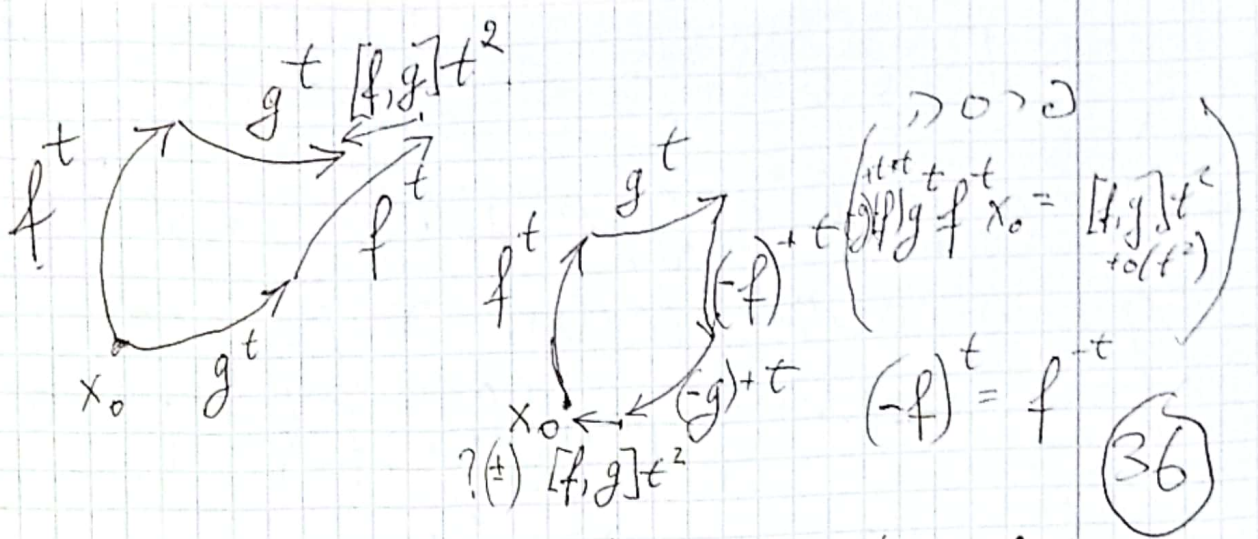 g^t [f,g]t^2
f^t
f^t
x_0 g^t
g^t
f^t
(-f)^{+t}
(-g)^{+t}
x_0
?(±) [f,g]t^2
g^t f^t x_0 = [f,g]t^2
+o(t^2)
(-f)^t = f^{-t}
36